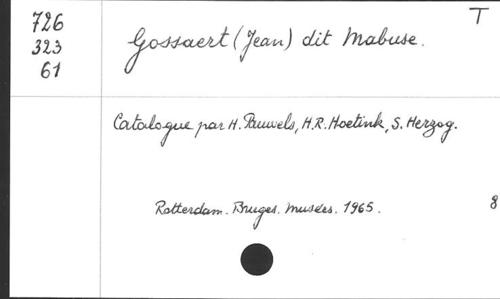 T
726
323
61
Gossaert (Jean) dit Mabuse.
Catalogue par H. Pauwels, H.R. Hoetink, S. Herzog.
Rotterdam. Bruges. Musées. 1965.
8